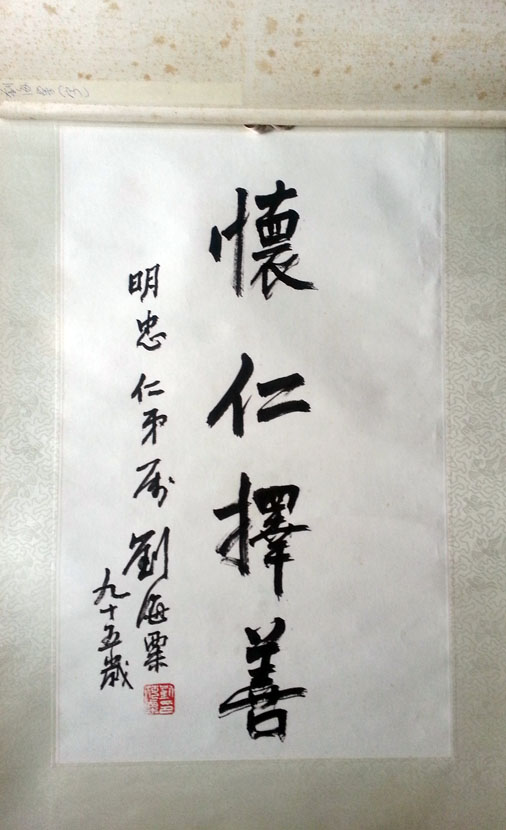 懷仁擇善
明忠仁弟属 劉海粟
九十五歲